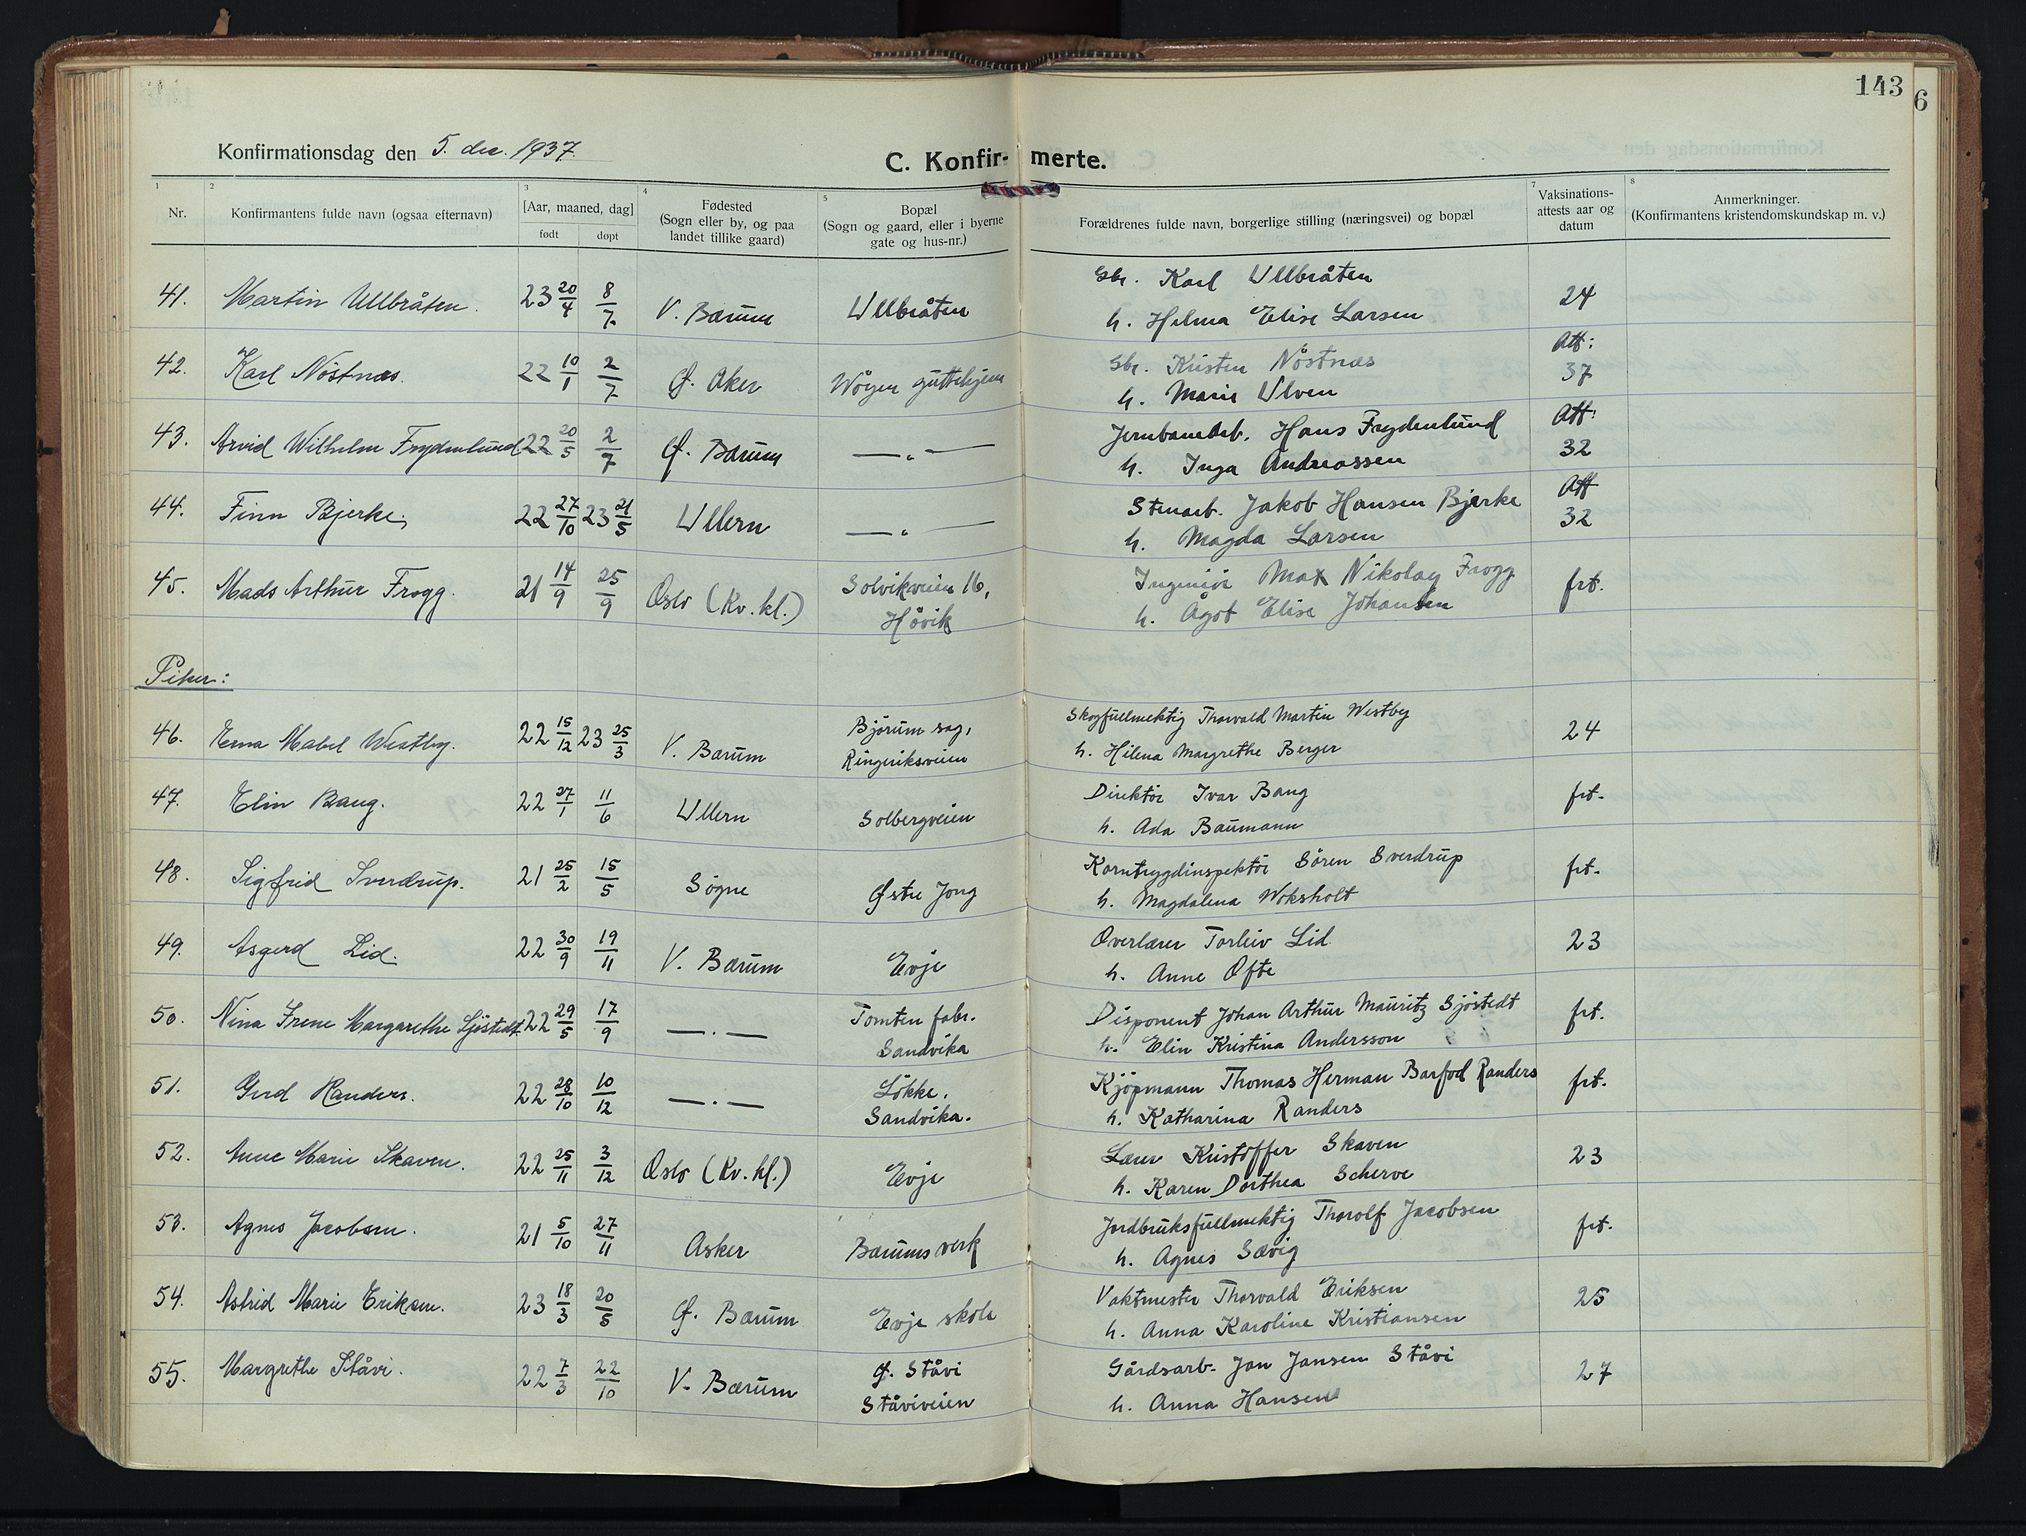 143
6
Konfirmationsdag den 5. dec. 1937.
C. Konfir- merte.
1 2 3 4 5 7 8
Nr.
Konfirmantens fulde navn (ogsaa efternavn)
[Aar, maaned, dag]
født døpt
Fødested
(Sogn eller by, og paa
landet tillike gaard)
Bopæl
(Sogn og gaard, eller i byerne
gate og hus-nr.)
Forældrenes fulde navn, borgerlige stilling (næringsvei) og bopæl
Vaksinations-
attests aar og
datum
Anmerkninger.
(Konfirmantens kristendomskundskap m. v.)
41. Martin Ullbråten. 23 20/4 8/7 V. Bærum Ullbråten Gbr. Karl Ullbråten 24
h. Helma Elise Larsen
42. Karl Nöstnæs. 22 10/1 2/7 Ø. Aker Wøyen guttehjem Gbr. Kristen Nöstnæs Att: 37
h. Marie Ulven
43. Arvid Wilhelm Frydenlund 22 20/5 2/7 Ø. Bærum —„— Jernbanearb. Hans Frydenlund Att: 32
h. Inga Andreassen
44. Finn Bjerke. 22 27/10 23 21/5 Ullern —„— Stenarb. Jakob Hansen Bjerke Att 32
h. Magda Larsen
45. Mads Arthur Frogg. 21 14/9 25/9 Oslo (Kv. kl.) Solvikveien 16, Ingeniör Max Nikolay Frogg frt.
Hövik h. Ågot Elise Johansen
Piker:
46. Erna Mabel Westby. 22 15/12 23 25/3 V. Bærum Bjørum sag, Skogfullmektig Thorvald Martin Westby 24
Ringeriksveien h. Helena Margrethe Berger
47. Elin Bang. 22 27/1 11/6 Ullern Solbergveien Direktör Ivar Bang frt.
h. Ada Baumann
48. Sigfrid Sverdrup. 21 25/2 15/5 Søgne Østre Jong Korntrygdinspektör Sören Sverdrup frt.
h. Magdalena Woksholt
49. Asgerd Lid. 22 30/9 19/11 V. Bærum Evje Overlærer Torleiv Lid 23
h. Anne Ofte
50. Nina Irene Margarethe Sjöstedt. 22 29/5 17/9 —„— Tomten fabr. Disponent Johan Arthur Mauritz Sjöstedt frt.
Sandvika h. Elin Kristina Andersson
51. Gerd Randers. 22 28/10 10/12 —„— Løkke. Kjöpmann Thomas Herman Barfod Randers frt.
Sandvika. h. Katharina Randers
52. Anne Marie Skaven. 22 25/11 3/12 Oslo (Kv. kl.) Evje Lærer Kristoffer Skaven 23
h. Karen Dorthea Scherve
53. Agnes Jacobsen. 21 5/10 27/11 Asker Bærums verk Jordbruksfullmektig Thorolf Jacobsen frt.
h. Agnes Sævig
54. Astrid Marie Eriksen. 23 18/3 20/5 Ø. Bærum Evje skole Vaktmester Thorvald Eriksen 25
h. Anna Karoline Kristiansen
55. Margrethe Ståvi. 22 7/3 22/10 V. Bærum Ø. Ståvi Gårdsarb. Jan Jansen Ståvi 27
Ståviveien h. Anna Hansen